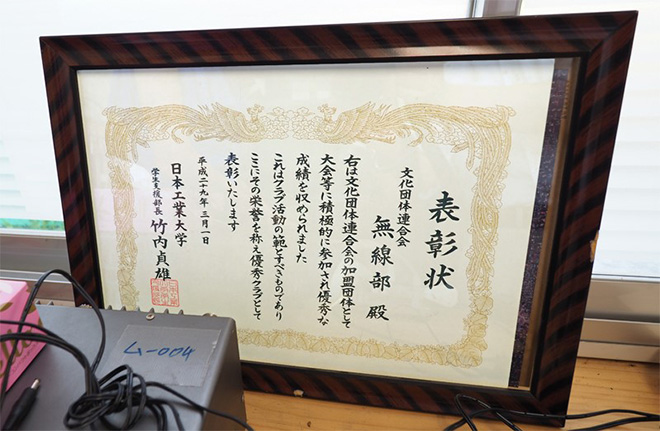 表彰状
文化団体連合会
無線部 殿
右は文化団体連合会の加盟団体として
大会等に積極的に参加され優秀な
成績を収められました
これはクラブ活動の範とすべきものであり
ここにその栄誉を称え優秀クラブとして
表彰いたします
平成二十九年 三月一日
日本工業大学
学生支援部長 竹内貞雄
ム-004